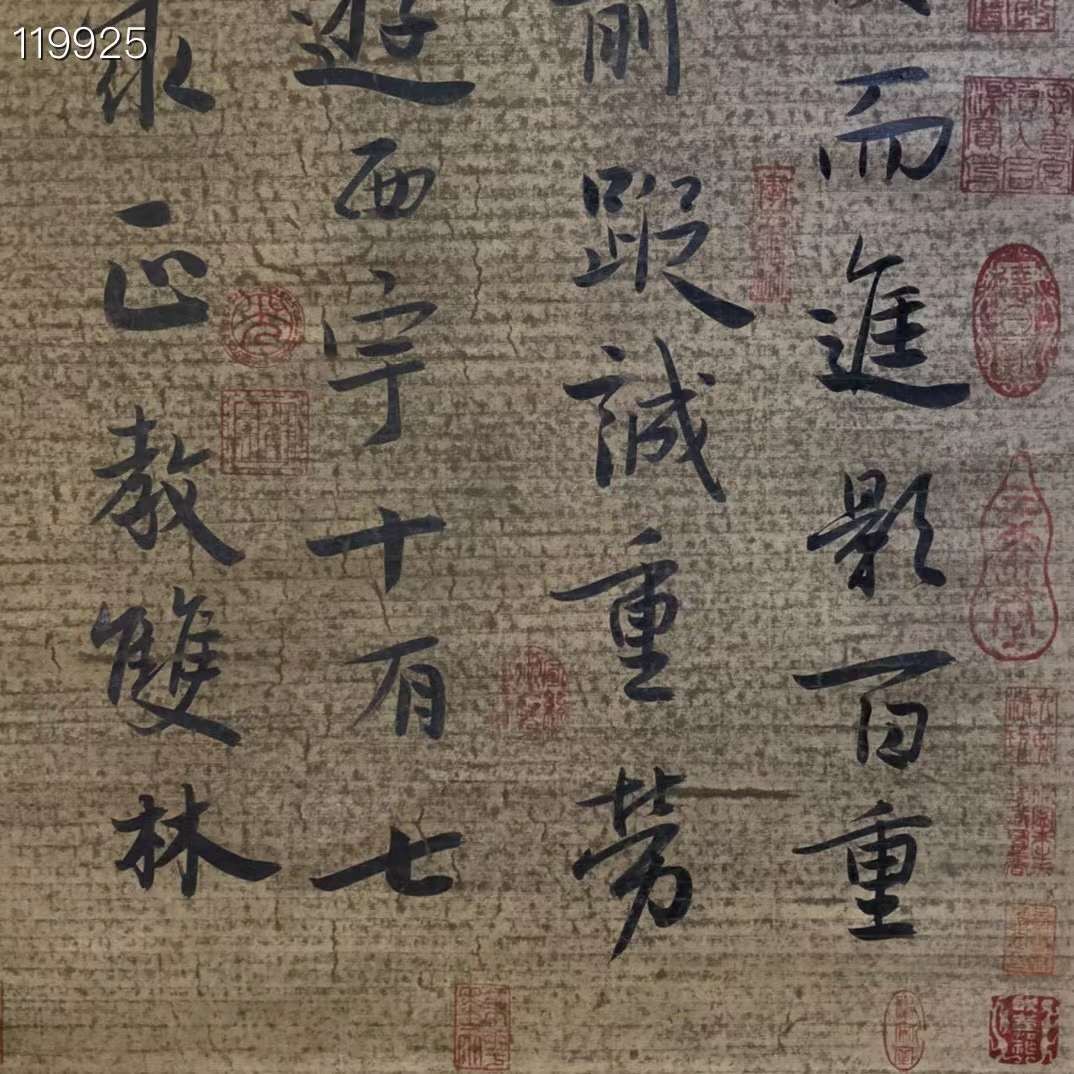 119925
而進影百重
前蹤誠重勞
遊西宇十有七
求正教雙林